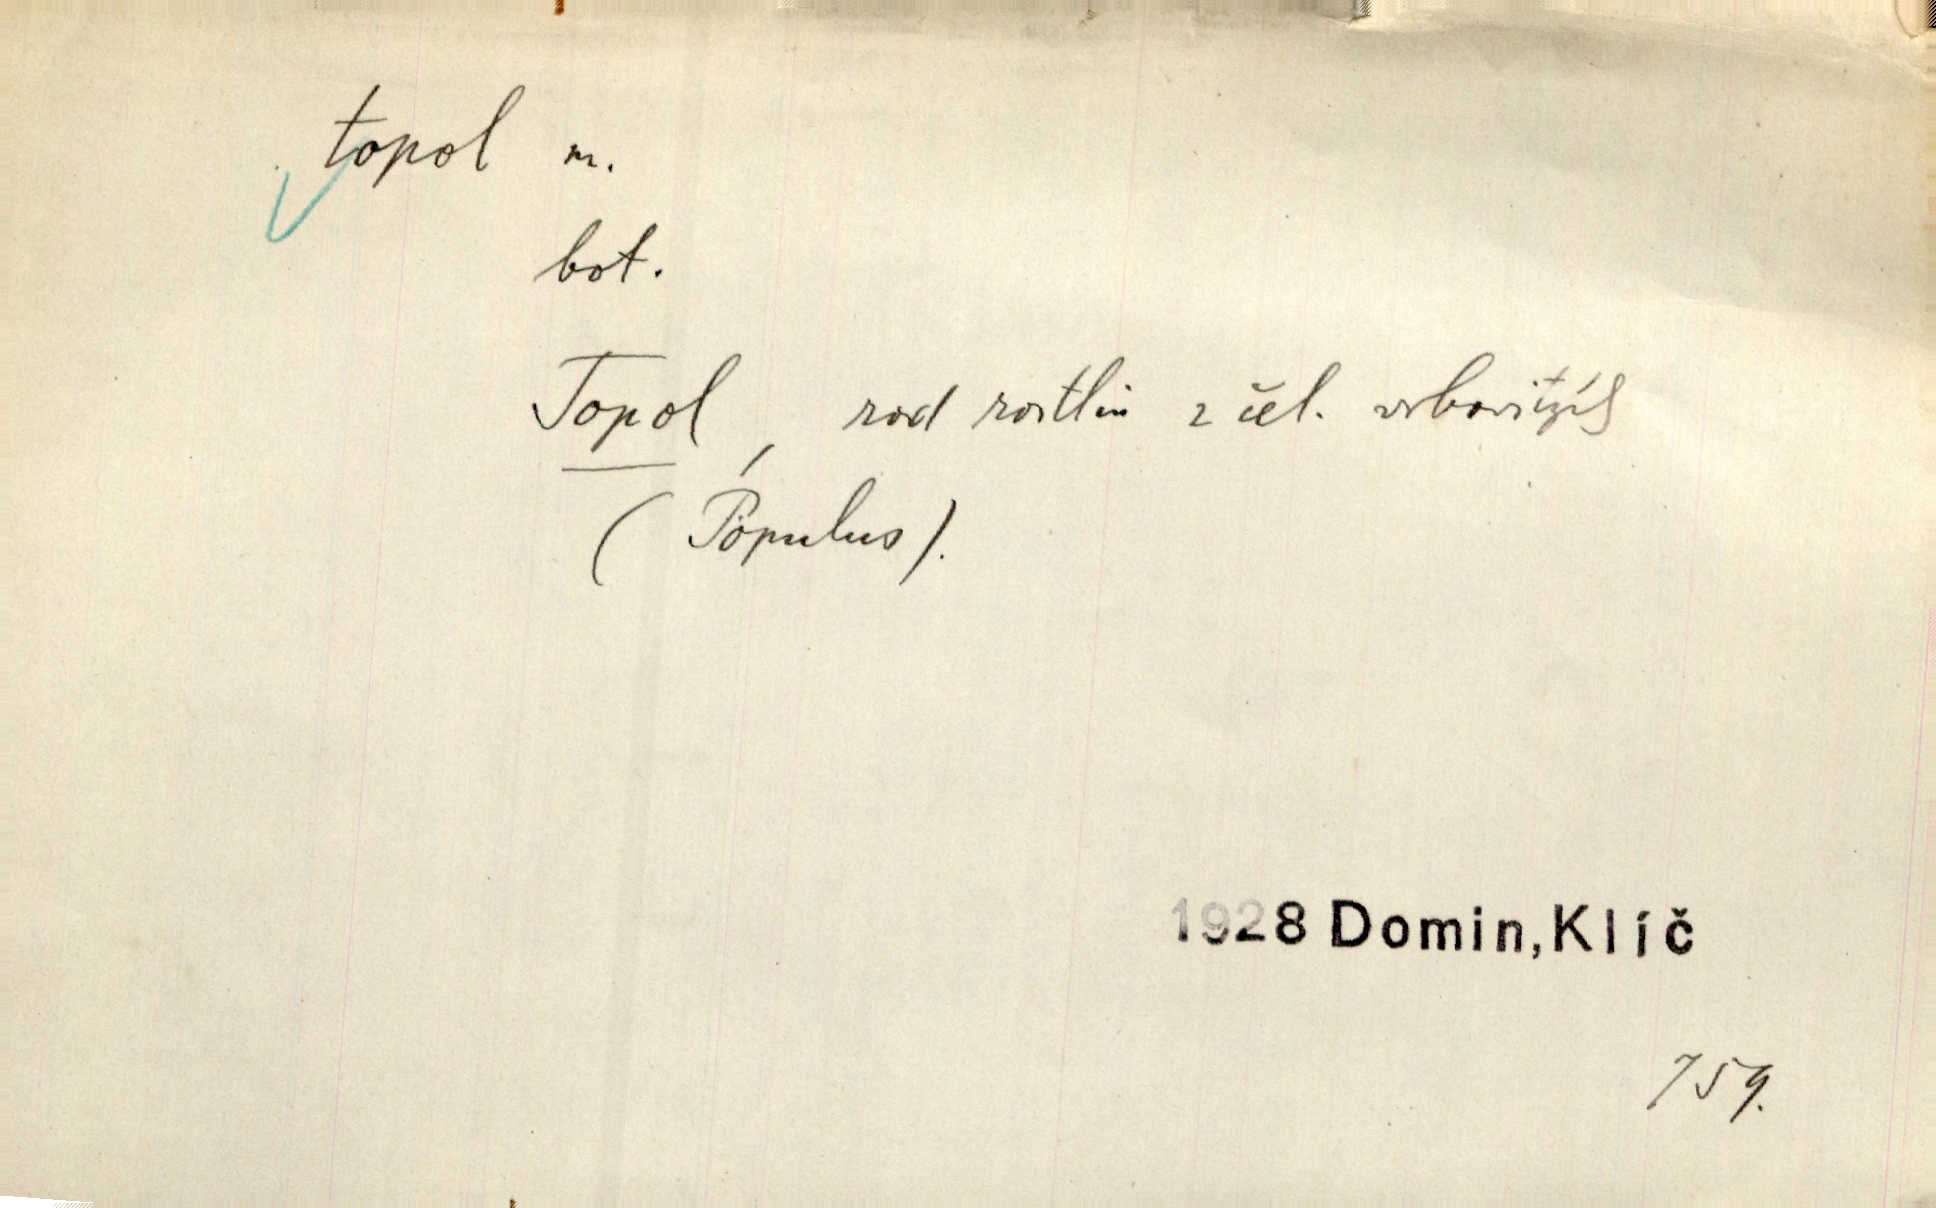 topol m.
bot.
Topol, rod rostlin z čel. vrbovitých
(Pópulus).
1928 Domin, Klíč
759.